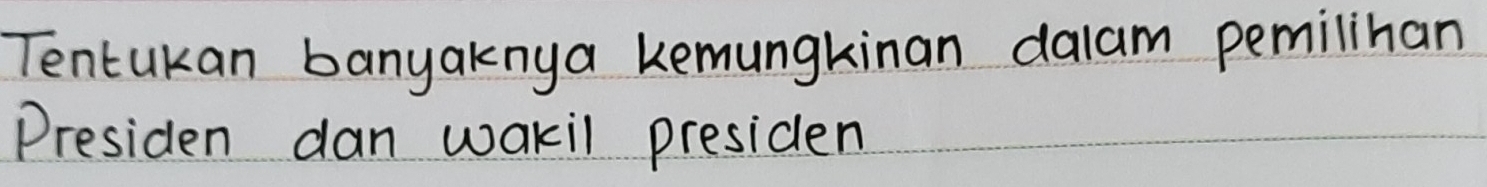 Tentukan banyaknya kemungkinan dalam pemilihan
Presiden dan wakil presiden